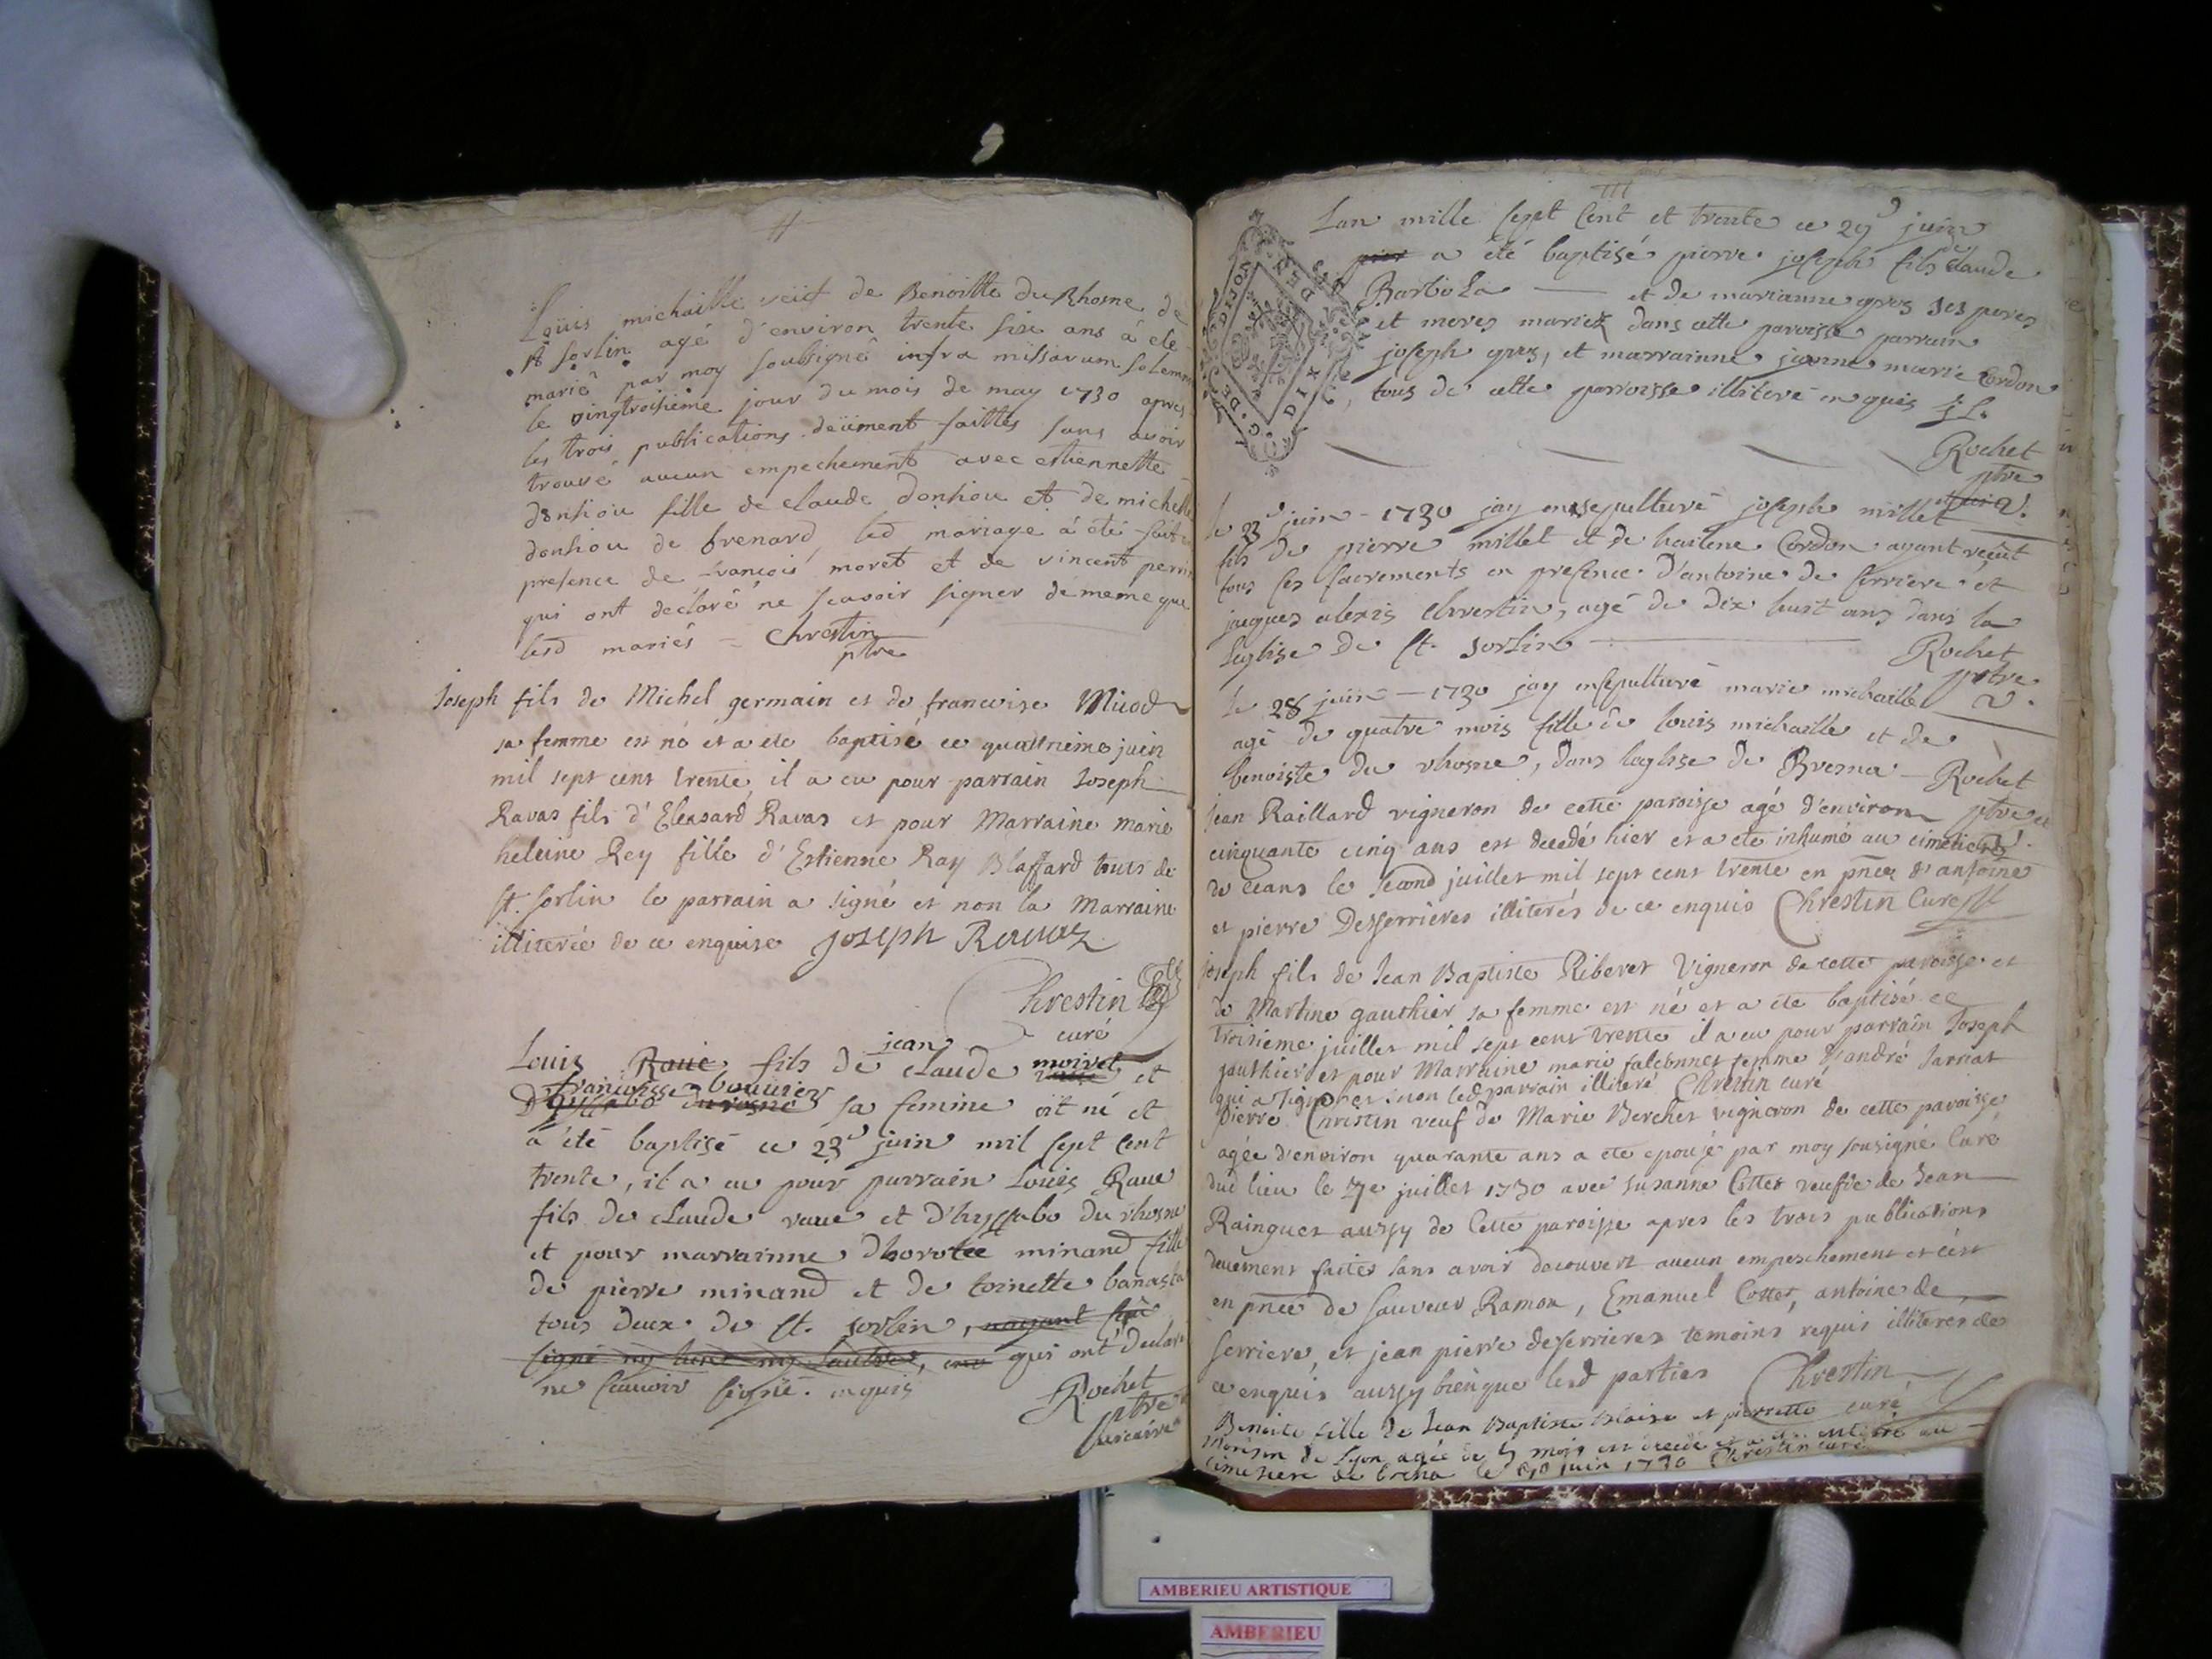 Louis michaille veuf de Benoitte du Rhosne de
St sorlin agé d'environ trente six ans à été
marié par moy soubsigné infra missarum solemn
le vingtroisième jour du mois de may 1730 apres
les trois publications deüment faittes sans avoir
trouvé aucun empechement avec estiennette
donsiou fille de claude donsiou et de michelle
donsiou de led mariage à été fait
presence de françois moret et de vincent perrin
qui ont declaré ne scavoir signer de meme que
lesd mariés - Chrestin
ptre
Joseph fils de Michel germain et de francoise Miiod
sa femme est né et a ete baptisé ce quatrieme juin
mil sept cens trente, il a eu pour parrain Joseph
Ravas fils d'Eleasard Ravas et pour Marraine marie
heleine Rey fille d'Estienne Ray Blaffard touts de
St. Sorlin le parrain a signé et non la Marraine
illiterée de ce enquise Joseph Ravaz
Chrestin
curé
jean
Louis Raue fils de claude moiret et
francoisse bouvier
sa femme est né et
a été baptisé ce 23e juin mil sept cent
trente, il a eu pour parrain Louis Raue
fils de claude raue et d'hyssabo du rhosne
et pour marrainne dhorotee minand fille
de pierre minand et de toinette banasta
tous deux de St. sorlin, nayant sçu
signé ny lune ny lautre, qui ont declare
ne scavoir signé. enquis
Rochet
ptre
vicaire
III
Lan mille sept cent et trente ce 29e juin
a été baptisé pierre joseph fils de claude
Barbola — et de marianne gros ses peres
et meres mariez dans cette paroisse parrain
joseph gros, et marrainne jeanne marie Cordon
tous de cette parroisse illiteré enquis
G. DE DIJON
DIX DEN
Rochet
ptre
le 23e juin - 1730 jay ensepulturé joseph millet
fils de pierre millet et de heilene Cordon ayant recüt
tous ses sacrements en presence d'antoine de serriere et
jacques alexis chrestin, agé de dix huit ans dans la
Leglise de St. sorlin
Rochet
ptre
le 28 juin — 1730 jay ensepulturé marie michaille
agé de quatre mois fille de louis michaille et de
benoiste du rhosne, dans leglise de Bresna - Rochet
ptre
Jean Raillard vigneron de cette paroisse agé d'environ
cinquante cinq ans est decedé hier et a ete inhumé au cimetiere
de ceans le second juillet mil sept cens trente en pñce d'antoine
et pierre Desserrieres illiterés de ce enquis Chrestin Curé
Joseph fils de Jean Baptiste Riberet Vigneron de cette paroisse et
de Martine gauthier sa femme est né et a ete baptisé ce
troisieme juillet mil sept cens trente il a eu pour parrain Joseph
gauthier et pour Marraine marie falconnet femme d'andré Jarriat
qui a signé et non led parrain illiteré Chrestin curé
Pierre Chrestin veuf de Marie Berchet vigneron de cette paroisse
agée d'environ quarante ans a ete epousé par moy sousigné Curé
dud lieu le 7e juillet 1730 avec susanne Cottet veufve de Jean
Rainguet aussy de Cette paroisse apres les trois publications
deuement faites sans avoir decouvert aucun empeschement et c'est
en pñce de Sauveur Ramon, Emanuel Cottet, antoine de
serriere, et jean pierre deserrieres temoins requis illiteres de
ce enquis aussy bien que lesd parties Chrestin
curé
Benoite fille de Jean Baptiste blaise et pierrette
Morison de Lyon agée de 5 mois est decedé et a ete enterré au
cimetiere de le juin 1730 Chrestin curé
AMBERIEU ARTISTIQUE
AMBERIEU